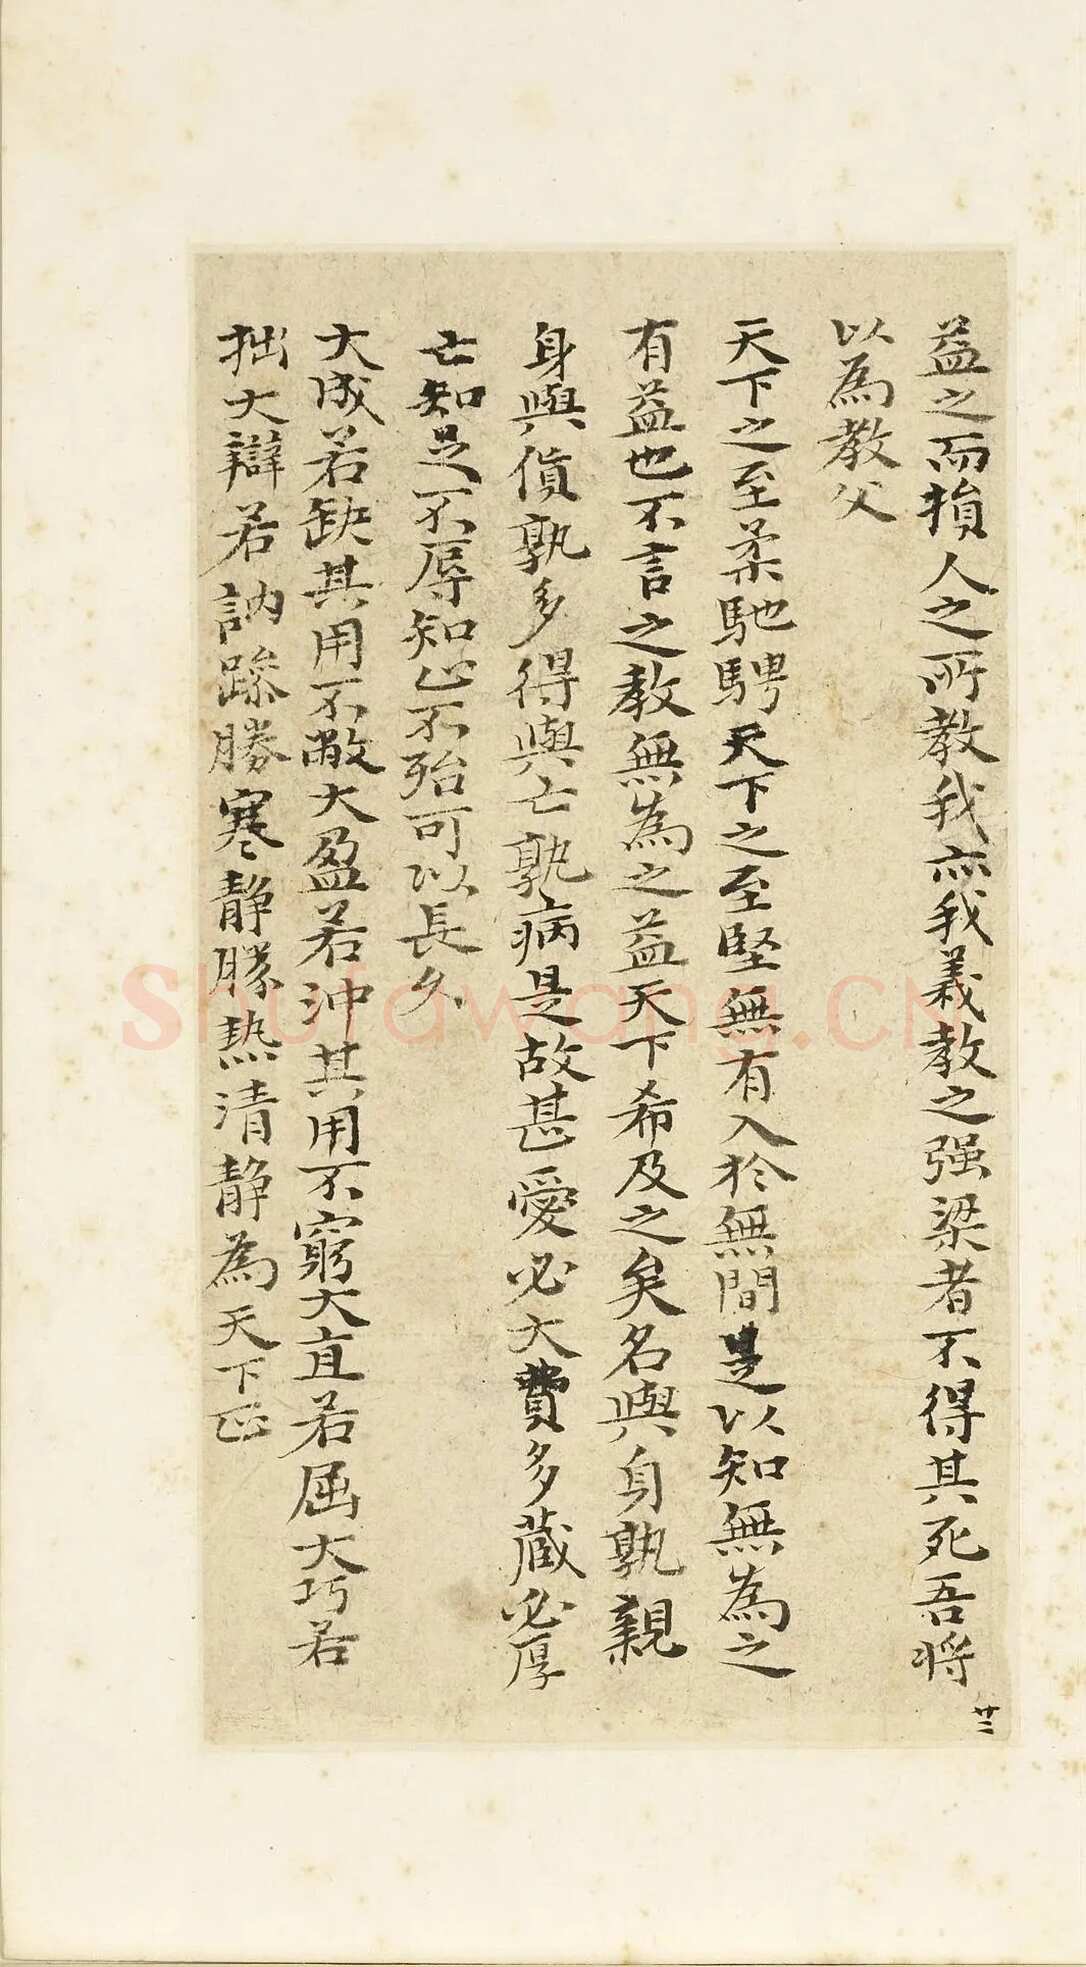 益之而損人之所教我亦我義教之强梁者不得其死吾将
以為教父
天下之至柔馳騁天下之至堅無有入於無間是以知無為之
有益也不言之教無為之益天下希及之矣名與身孰親
身與貨孰多得與亡孰病是故甚愛必大費多蔵必厚
亡知足不辱知止不殆可以長久
大成若缺其用不敝大盈若沖其用不窮大直若屈大巧若
拙大辯若訥躁勝寒静勝熱清静為天下正
廿二
shufawang.CN